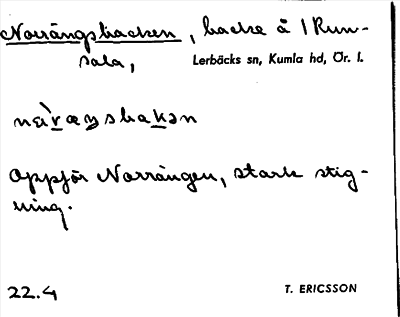 Norrängsbacken, backe å 1 Run-
sala,
Lerbäcks sn, Kumla hd, Ör. l.
Uppför Norrängen, stark stig-
ning.
22.4
T. ERICSSON